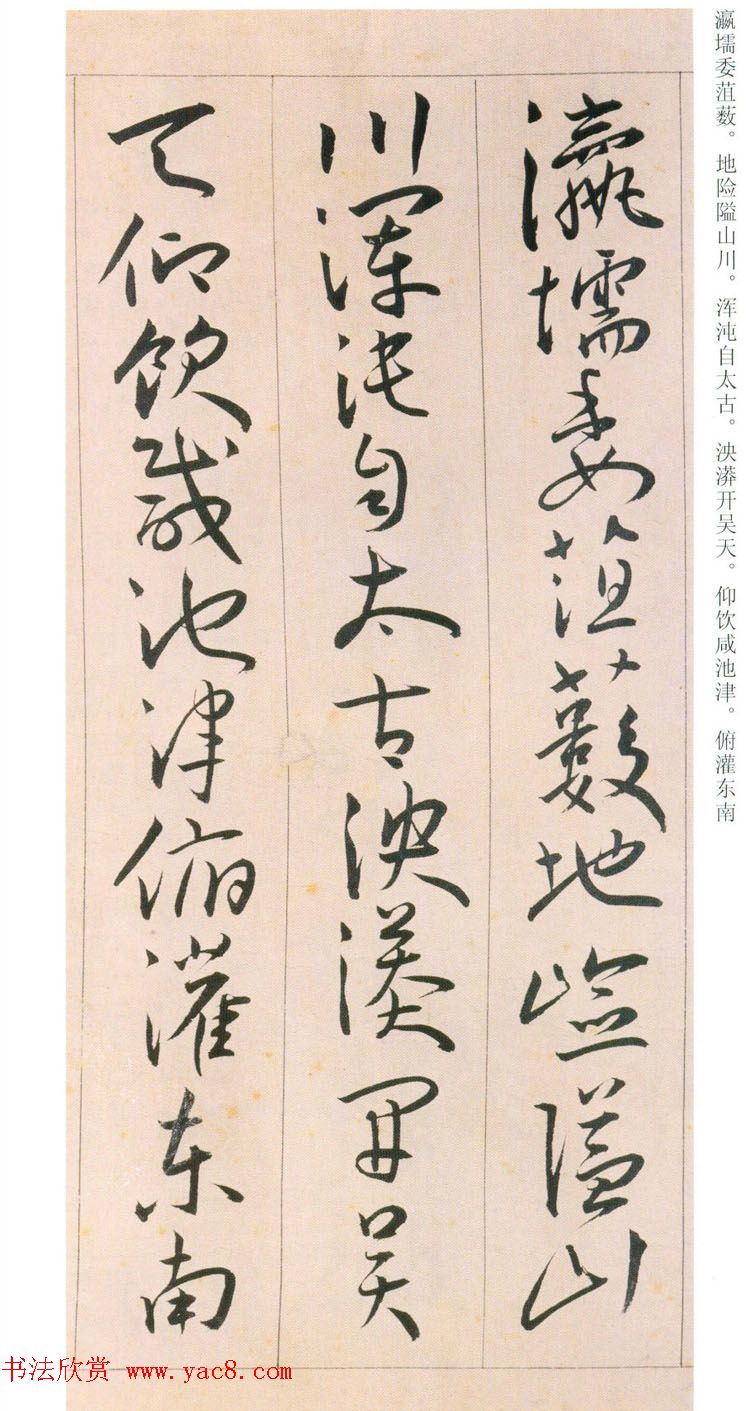 瀛壖委菹薮。地险隘山川。浑沌自太古。泱漭开吴天。仰饮咸池津。俯灌东南
瀛壖委菹薮地嶮隘山
川渾沌自太古泱漭開吳
天仰飲咸池津俯灌東南
书法欣赏 www.yac8.com